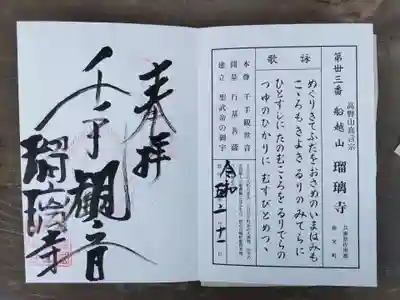 高野山真言宗
第丗三番 船越山 瑠璃寺
詠歌
めぐりきてふだをおさめのいまはみも
こゝろもきよきるりのみてらに
ひとすじにたのむこゝろをるりでらの
つゆのひかりにむすびとめつゝ
本尊 千手観世音
開基 行基菩薩
建立 聖武帝の御宇
令和
奉拝
千手観音
瑠璃寺